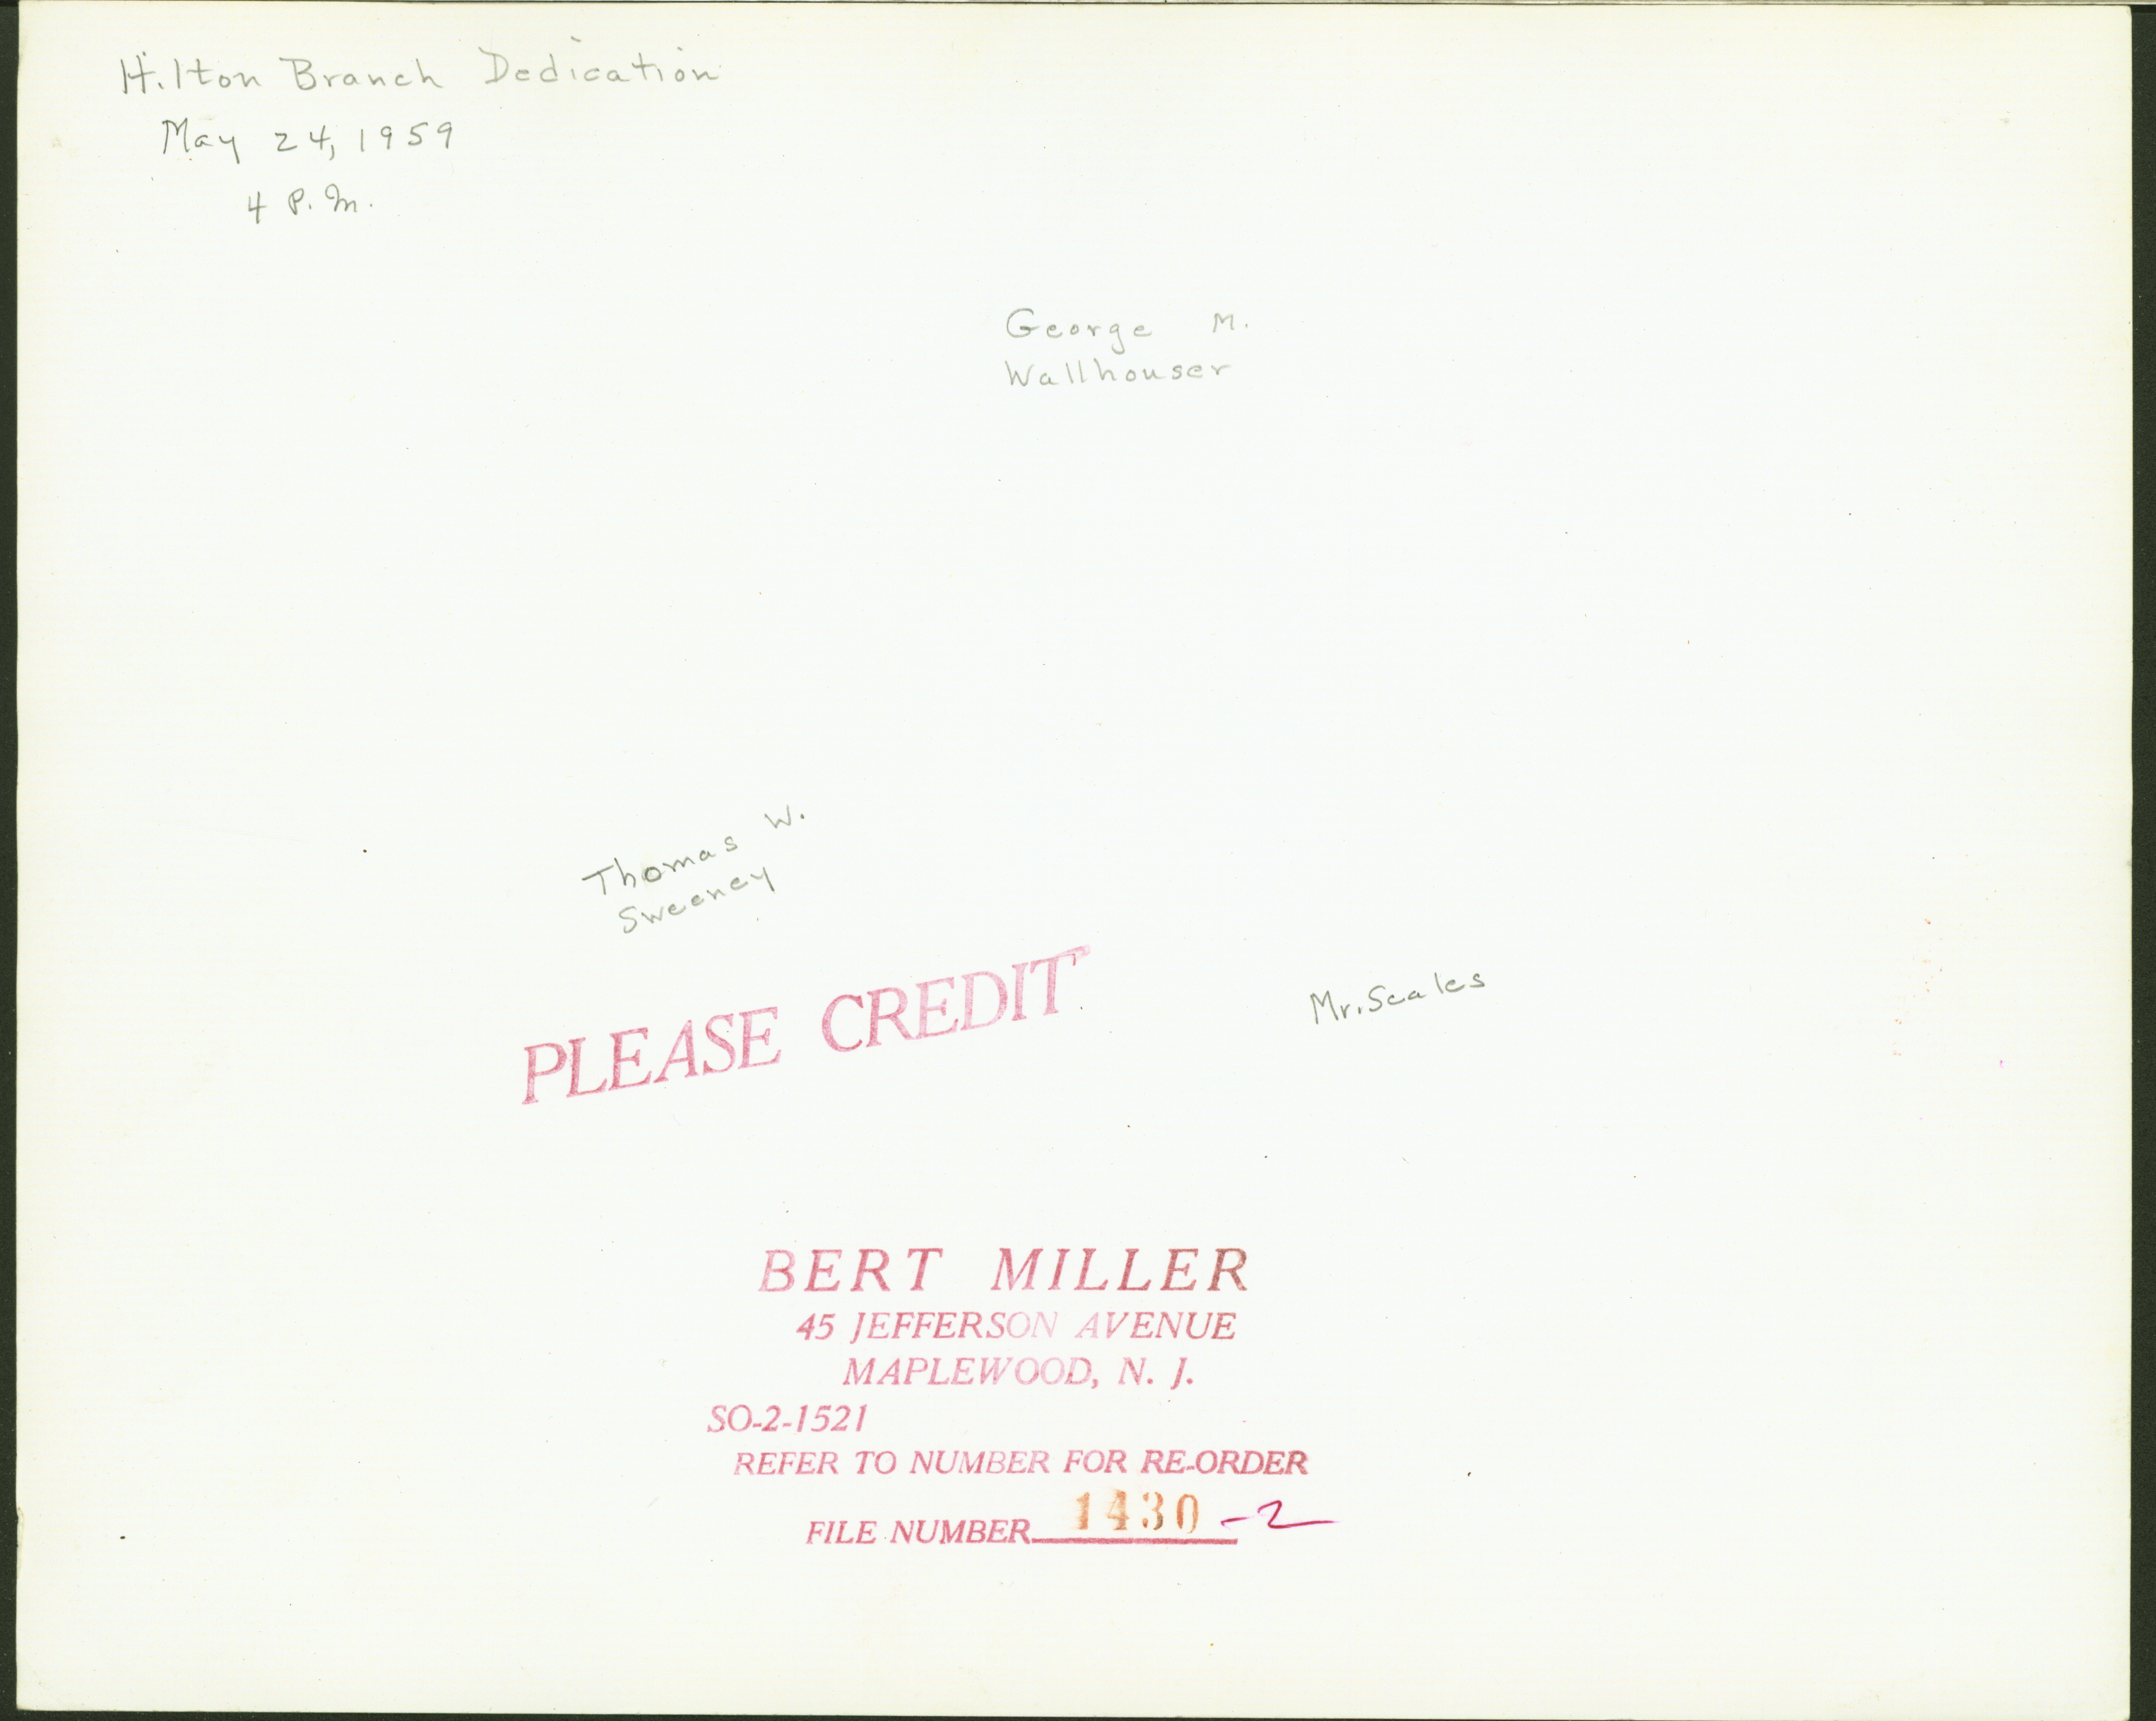 Hilton Branch Dedication
May 24, 1959
4 P.M.
George M.
Wallhouser
Thomas W.
Sweeney
Mr. Scales
PLEASE CREDIT
BERT MILLER
45 JEFFERSON AVENUE
MAPLEWOOD, N. J.
SO-2-1521
REFER TO NUMBER FOR RE-ORDER
FILE NUMBER 1430 -2